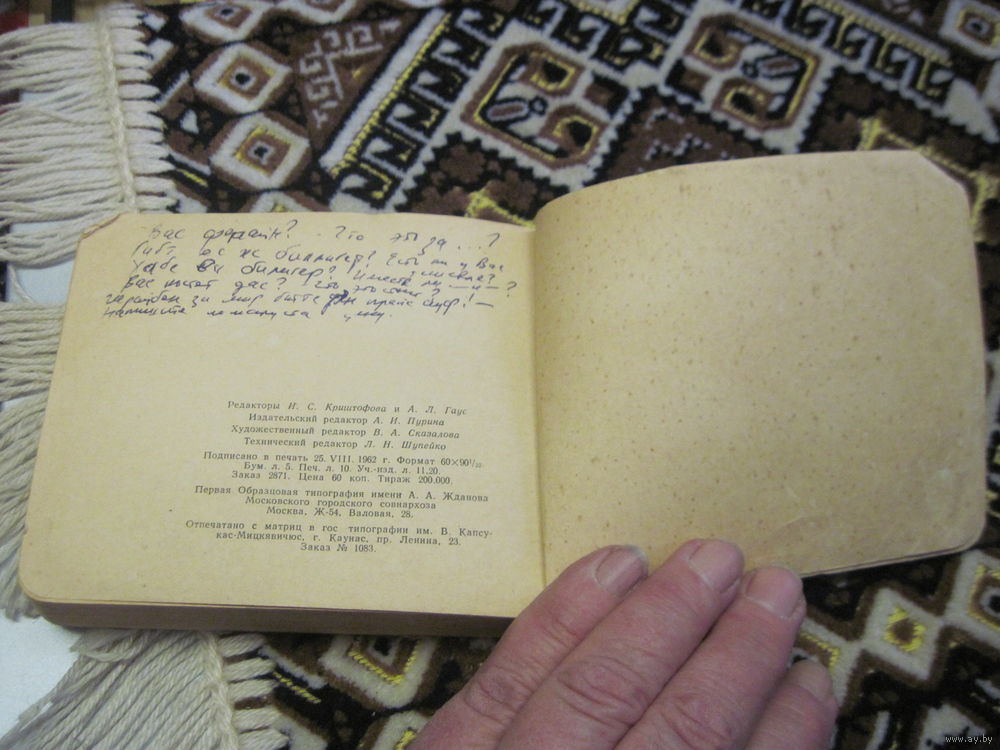 Вас Что это за ...?
Гибт ес ... биллигер? Есть ли у Вас
Хабе ... билигер?
Вас костет дас? Что это стоит?
за мир битте ден прайс ауф! —
Напишите пожалуста цену.
Редакторы И. С. Криштофова и А. Л. Гаус
Издательский редактор А. И. Пурина
Художественный редактор В. А. Сказалова
Технический редактор Л. Н. Шупейко
Подписано в печать 25. VIII. 1962 г. Формат 60×90¹/₃₂
Бум. л. 5. Печ. л. 10. Уч.-изд. л. 11,20.
Заказ 2871. Цена 60 коп. Тираж 200.000.
Первая Образцовая типография имени А. А. Жданова
Московского городского совнархоза
Москва, Ж-54, Валовая, 28.
Отпечатано с матриц в гос типографии им. В. Капсу-
кас-Мицкявичюс, г. Каунас, пр. Ленина, 23.
Заказ № 1083.
www.ay.by